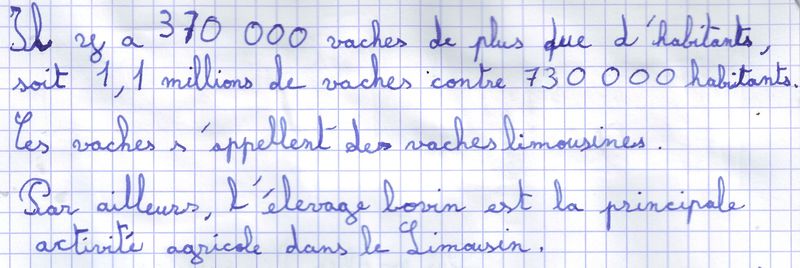 Il y a 370 000 vaches de plus que d'habitants,
soit 1,1 millions de vaches contre 730 000 habitants.
Les vaches s'appellent des vaches limousines.
Par ailleurs, L'élevage bovin est la principale
activité agricole dans le Limousin.